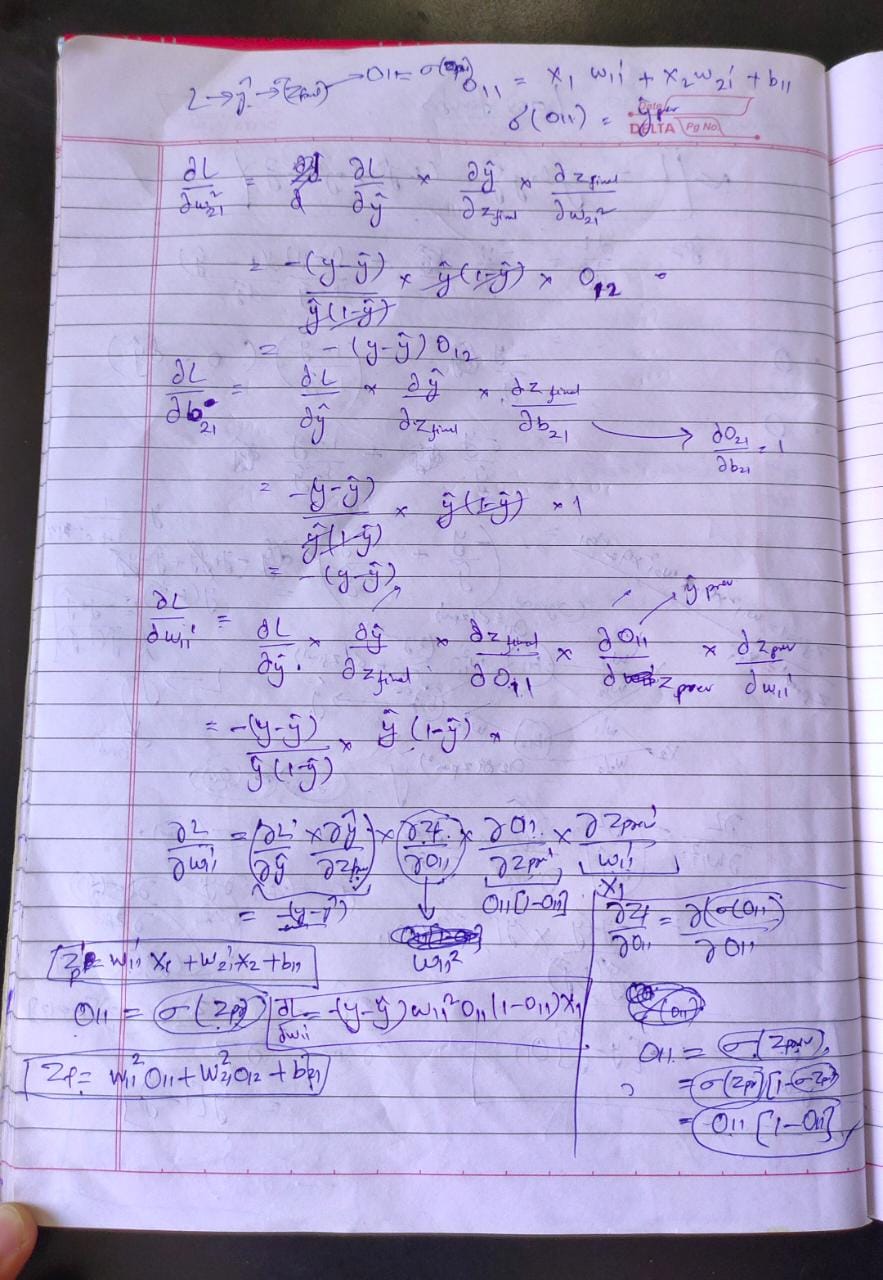 L → ŷ → (z_final) → O11 = σ(z_p) O11 = x1 w11¹ + x2 w21¹ + b11
σ(O11) = ŷ_prev
Date
DELTA Pg No.
∂L/∂w21² = ∂L/∂ŷ × ∂ŷ/∂z_final × ∂z_final/∂w21²
= -(y-ŷ)/ŷ(1-ŷ) × ŷ(1-ŷ) × O12
= -(y-ŷ) O12
∂L/∂b21 = ∂L/∂ŷ × ∂ŷ/∂z_final × ∂z_final/∂b21 → ∂O21/∂b21 = 1
= -(y-ŷ)/ŷ(1-ŷ) × ŷ(1-ŷ) × 1
= -(y-ŷ)
ŷ prev
∂L/∂w11¹ = ∂L/∂ŷ × ∂ŷ/∂z_final × ∂z_final/∂O11 × ∂O11/∂z_prev × ∂z_prev/∂w11¹
= -(y-ŷ)/ŷ(1-ŷ) × ŷ(1-ŷ) ×
∂L/∂w11¹ = (∂L/∂ŷ × ∂ŷ/∂zf) × ∂zf/∂O11 × ∂O11/∂zpr × ∂zprev/w11¹
= -(y-ŷ) w11² O11[1-O11] x1
∂zf/∂O11 = ∂(σ(O11))/∂O11
zp = w11¹ x1 + w21¹ x2 + b11
O11 = σ(zpr)
∂L/∂w11 = -(y-ŷ) w11² O11 (1-O11) x1
zf = w11² O11 + w21² O12 + b21
O11 = σ(zprev)
= σ(zpr)[1-σzpr]
= O11 [1-O11]